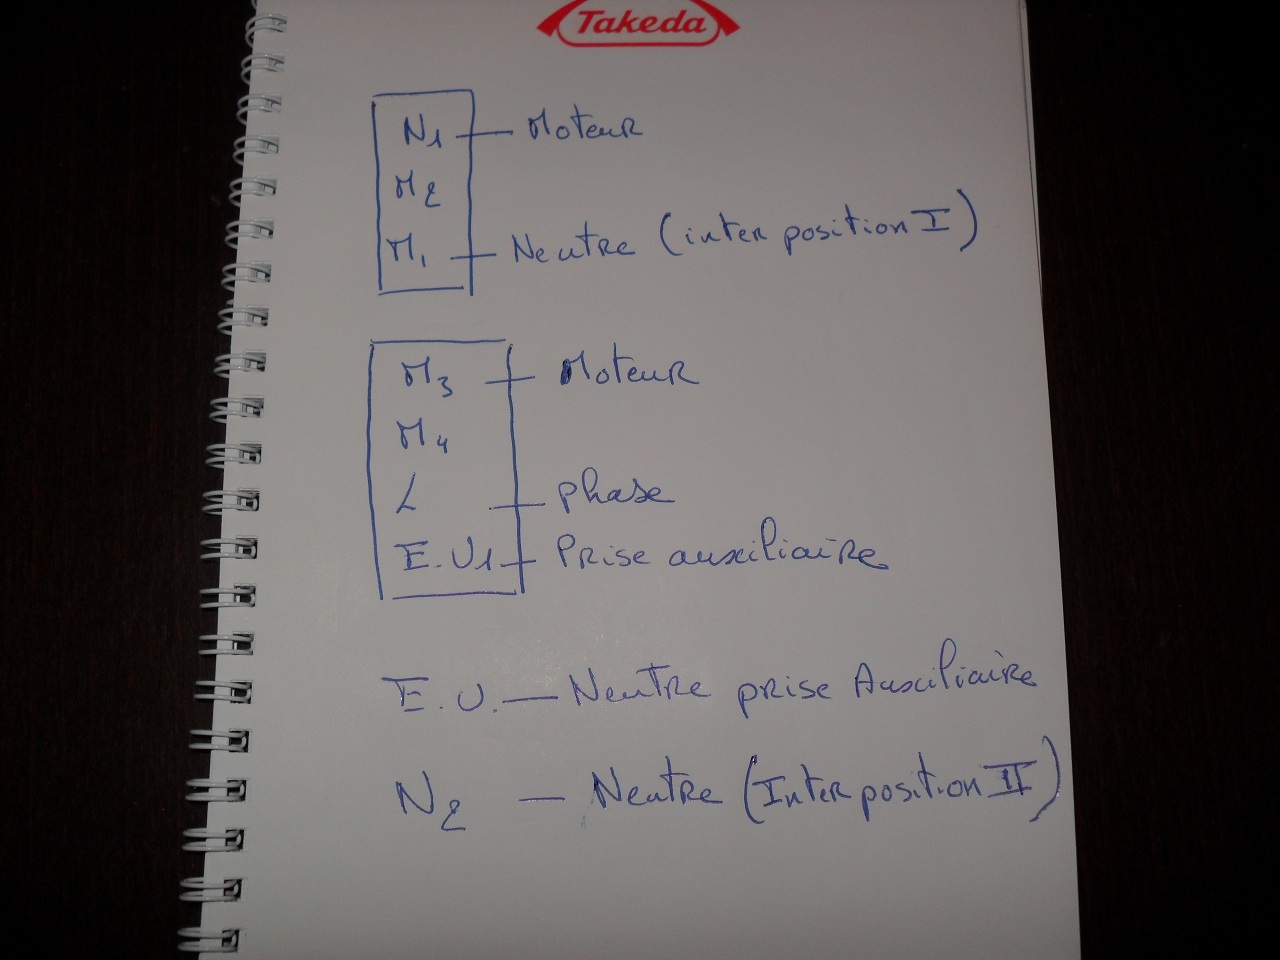 Takeda
N1 — Moteur
M2
M1 — Neutre (inter position I)
M3 — Moteur
M4
L — phase
E.V1 — Prise auxiliaire
E.V. — Neutre prise Auxiliaire
N2 — Neutre (Inter position II)